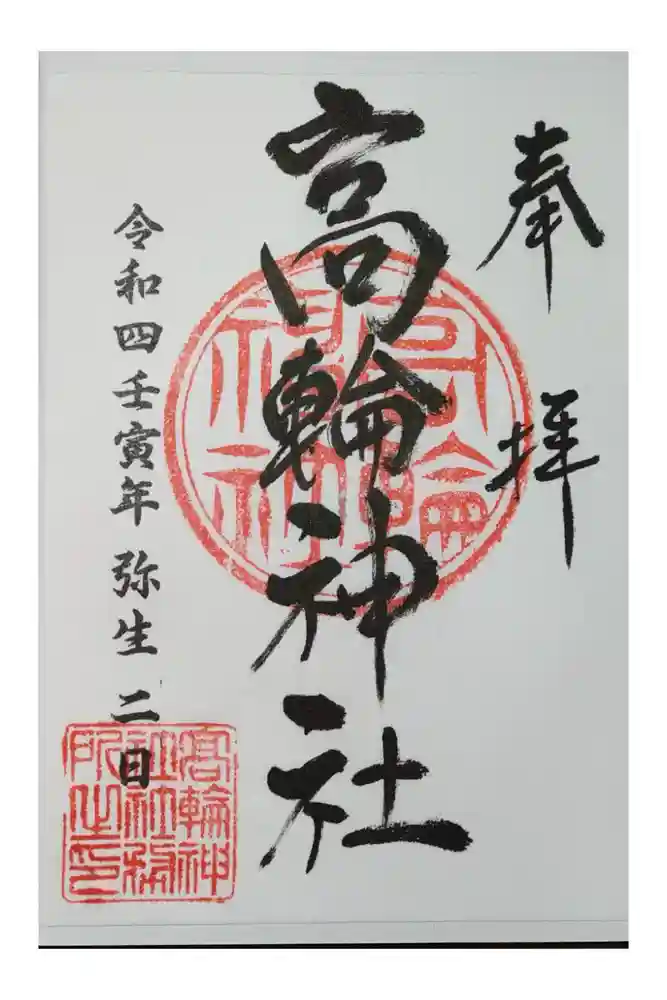 奉拝
高輪神社
令和四壬寅年 弥生 二日
高輪神社
高輪神社社務所之印